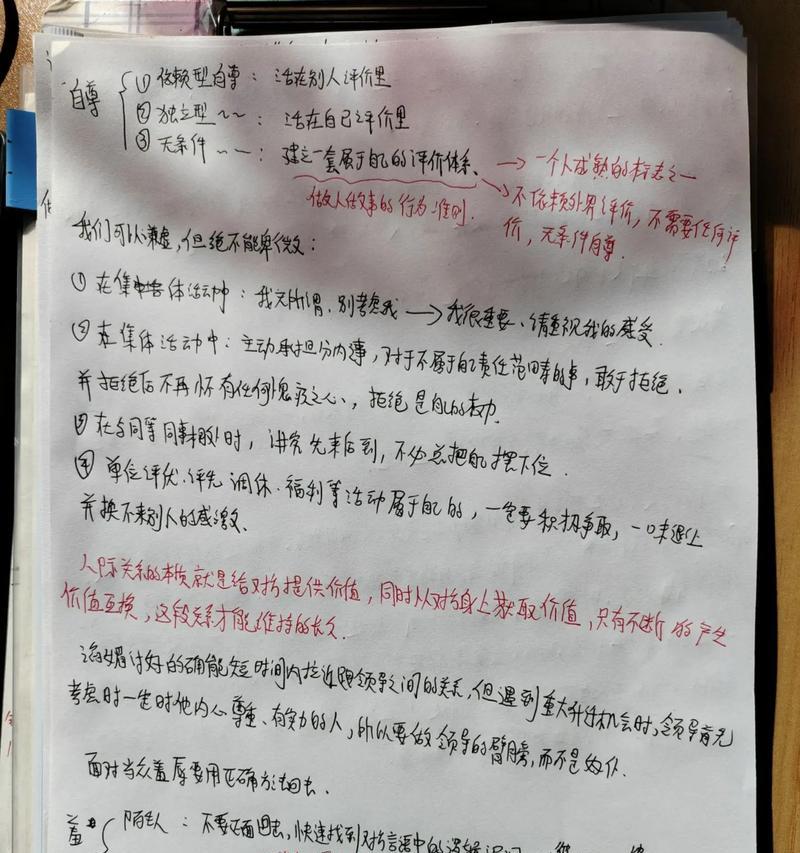 自尊 ① 依赖型自尊：活在别人评价里
② 独立型~~：活在自己评价里
③ 无条件~~：建立一套属于自己的评价体系、→一个人成熟的标志之一
做人做事的行为准则. 不依赖外界评价,不需要任何评
价,无条件自尊.
我们可以谦虚,但绝不能卑微：
① 在集体活动中：我无所谓、别考虑我→我很重要、请重视我的感受.
② 在集体活动中：主动承担分内事,对于不属于自己责任范畴的事,敢于拒绝.
并拒绝后不再怀有任何愧疚之心、,拒绝是自己的权力.
③ 在与同等同事相处时,讲究先来后到,不必总把自己摆下位.
④ 单位评优、评先、调休、福利等活动属于自己的,一定要积极争取,一味退让
并换不来别人的感激.
人际关系的本质就是给对方提供价值,同时从对方身上获取价值,只有不断的产生
价值互换,这段关系才能维持的长久.
谄媚讨好的确能短时间内拉近跟领导之间的关系,但遇到重大升迁机会时,领导首先
考虑时一定时他内心尊重、有实力的人,所以要做领导的臂膀,而不是奴仆.
面对当众羞辱要用正确方法回去.
羞 陌生人：不要正面回去,快速找到对方言语中的